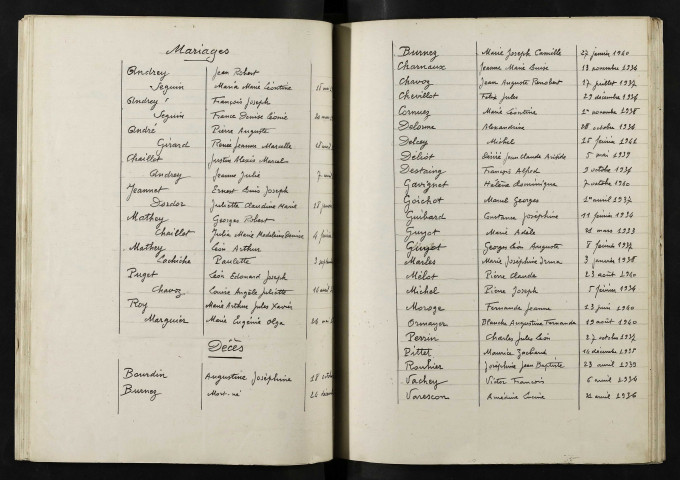 Mariages
Andrey Jean Robert
Seguin Maria Marie Léontine
Andrey François Joseph
Seguin France Denise Léonie
André Pierre Auguste
Girard Renée Jeanne Marcelle
Chaillot Justin Alexis Marcel
Andrey Jeanne Julie
Jeannet Ernest Louis Joseph
Dordor Juliette Claudine Marie
Mathey Georges Robert
Chaillot Julia Marie Madeleine Denise
Mathey Léon Arthur
Paulette
Puget Léon Edouard Joseph
Chavoz Louise Angèle Juliette
Roy Marie Arthur Jules Xavier
Marguier Marie Eugénie Olga
Décès
Bourdin Augustine Joséphine 18
Burnez Mort-né
Burnez Marie Joseph Camille 27 janvier 1940
Charnaux Jeanne Marie Luise 13 novembre 1934
Chavoz Jean Auguste 17 juillet 1937
Chevillot Félix Jules 29 décembre 1936
Cornuez Marie Léontine 1er novembre 1938
Delorme Alexandrine 28 octobre 1934
Delcey Michel 15 février
Désiré Jean Claude Aristide 5 mai 1939
Destaing François Alfred 9 octobre 1936
Gavignet Hélène dominique 7 octobre 1940
Goichot Marcel Georges 1er avril 1937
Guibard Constance Joséphine 11 février 1934
Guyot Marie Adèle 21 mars 1933
Guyot Georges Léon Auguste 8 février 1937
Marles Marie Joséphine Irma 3 janvier 1938
Mélot Pierre Claude 23 août 1940
Michel Pierre Joseph 5 février 1934
Moroge Fernande Jeanne 13 juin 1940
Ormoyer Blanche Augustine Fernande 19 août 1940
Perrin Charles Jules Léon 27 octobre 1937
Pittet Maurice Zacharie 14 décembre 1935
Rouhier Joséphine Jean Baptiste 23 avril 1939
Vachey Victor François 6 avril 1934
Varescon Amédine Lucine 21 avril 1936